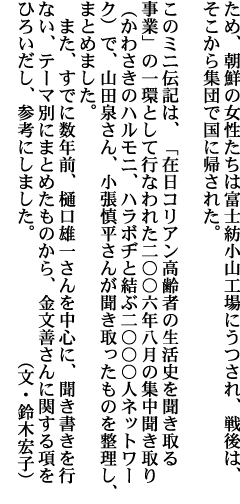 ため、朝鮮の女性たちは富士紡小山工場にうつされ、戦後は、
そこから集団で国に帰された。
このミニ伝記は、「在日コリアン高齢者の生活史を聞き取る
事業」の一環として行なわれた二〇〇六年八月の集中聞き取り
（かわさきのハルモニ、ハラボヂと結ぶ二〇〇〇人ネットワー
ク）で、山田泉さん、小張慎平さんが聞き取ったものを整理し、
まとめました。
また、すでに数年前、樋口雄一さんを中心に、聞き書きを行
ない、テーマ別にまとめたものから、金文善さんに関する項を
ひろいだし、参考にしました。　（文・鈴木宏子）